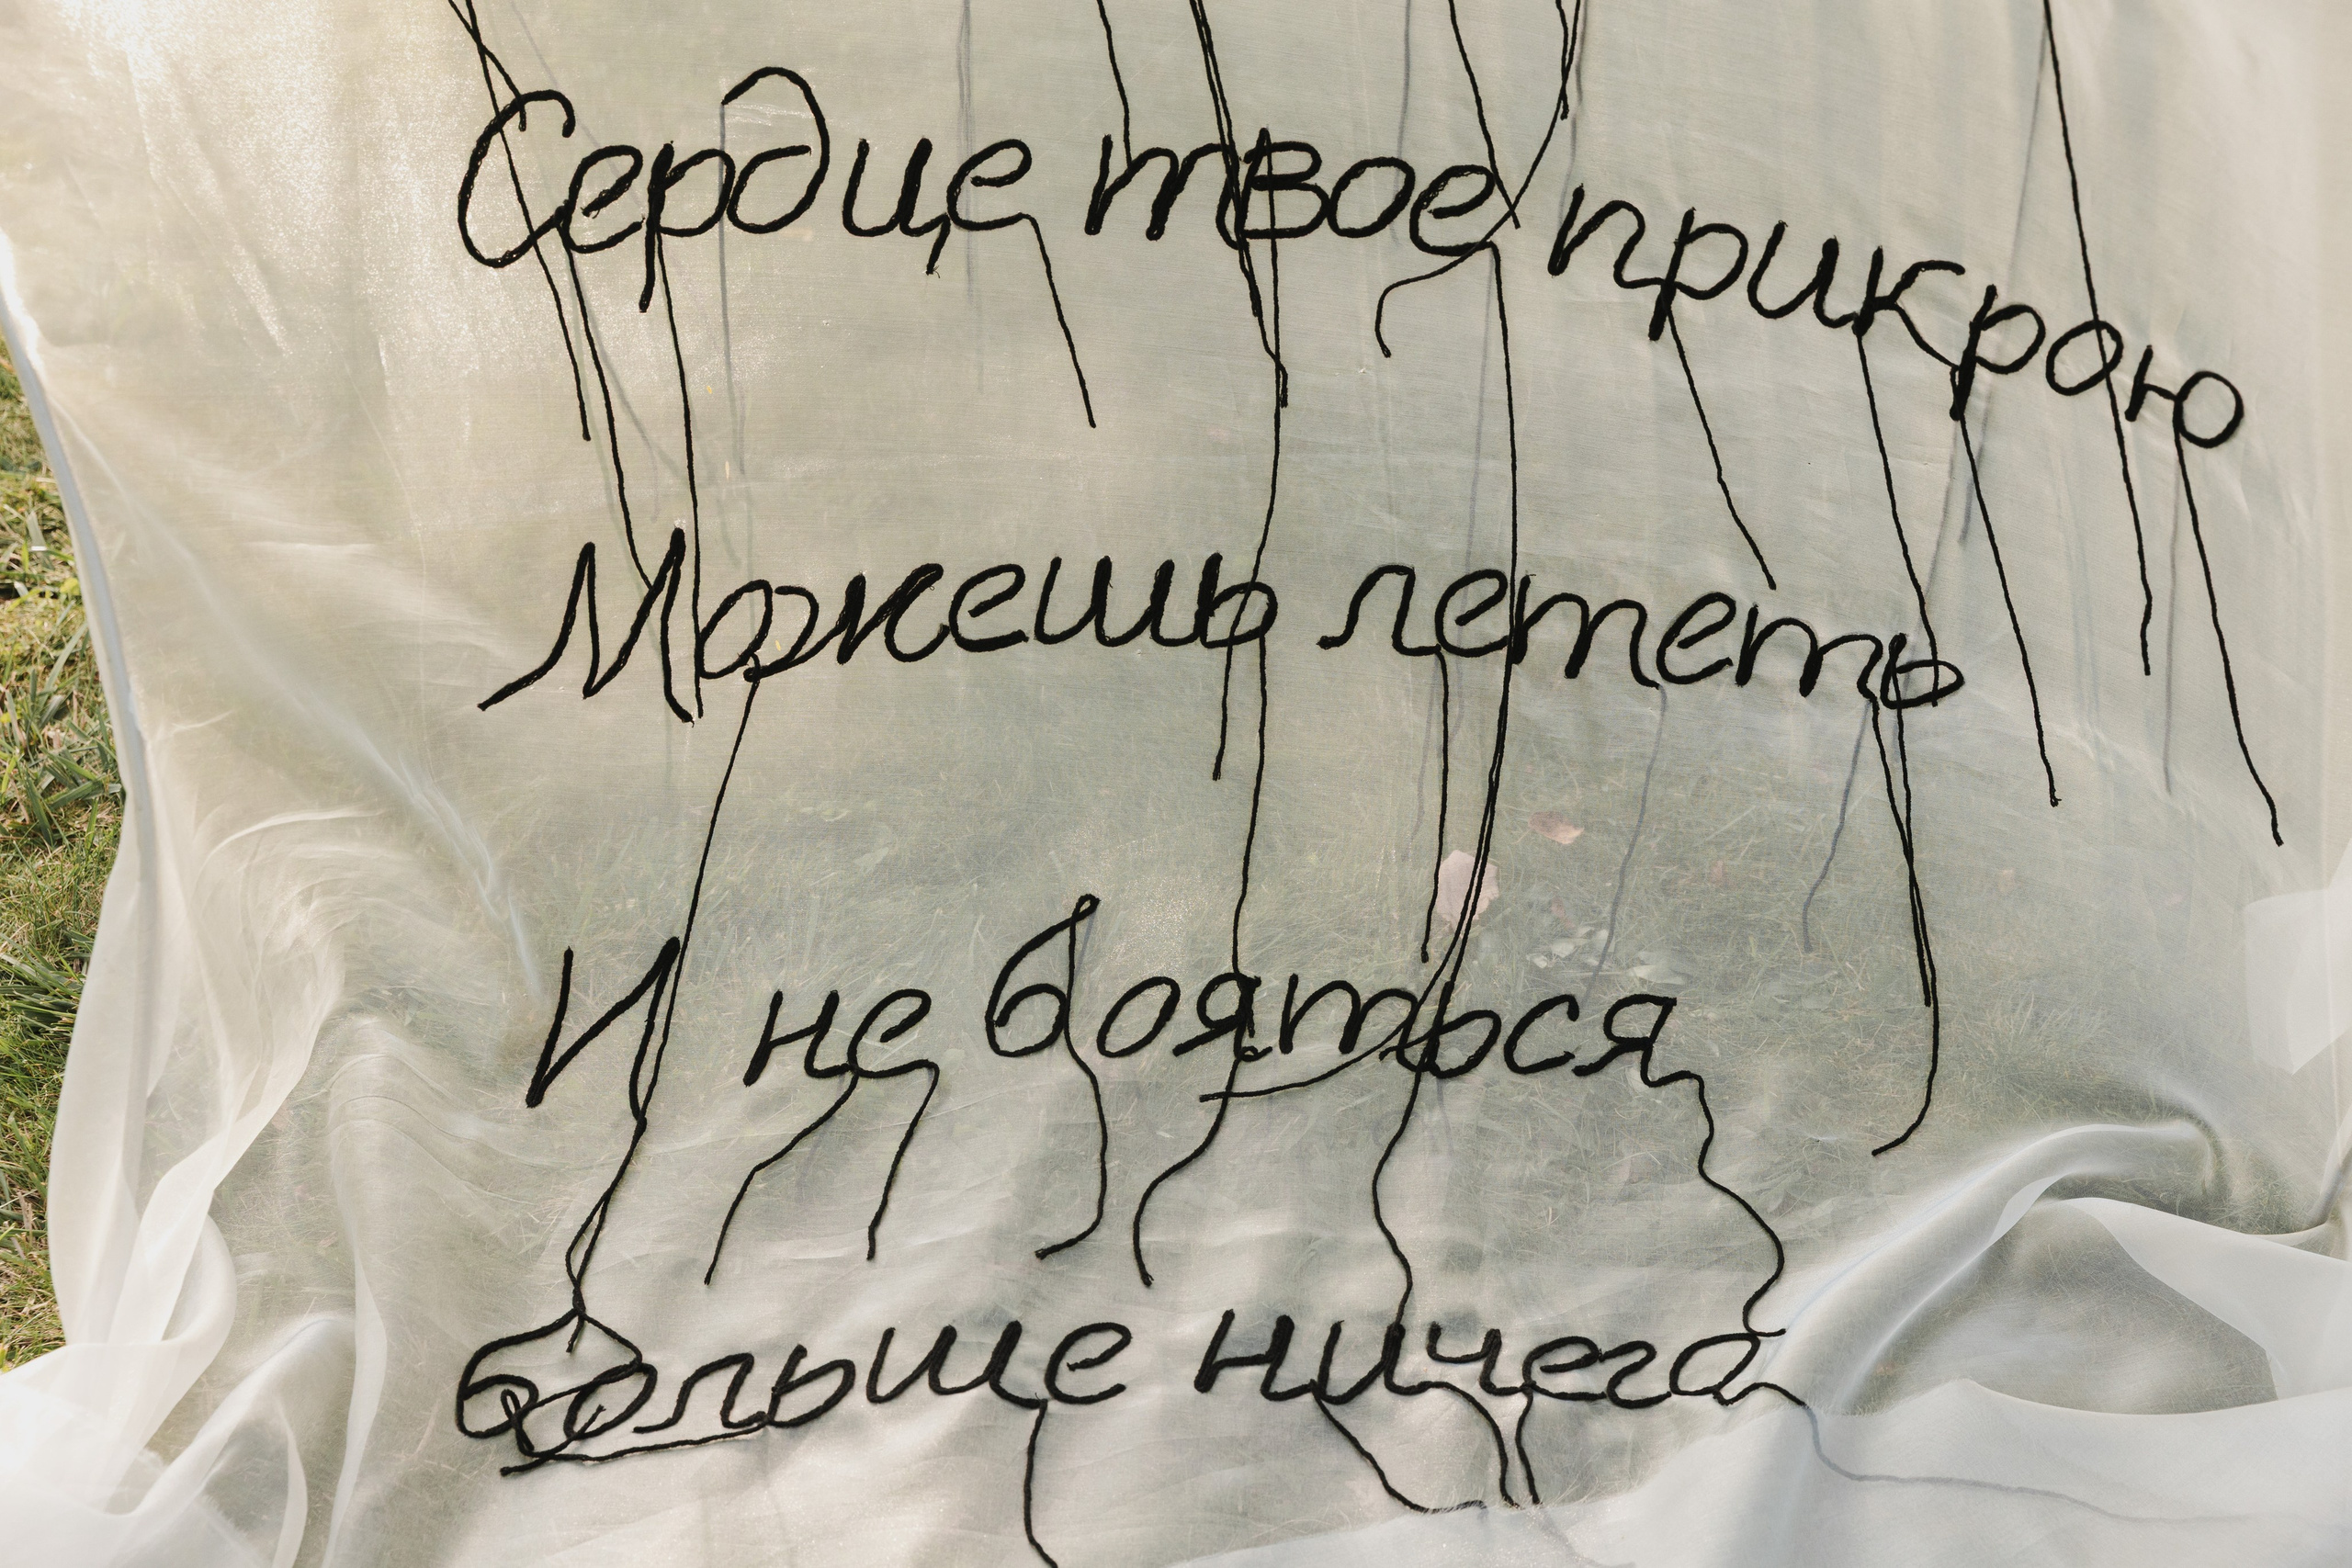 Сердце твое прикрою
Можешь лететь
И не бояться
больше ничего